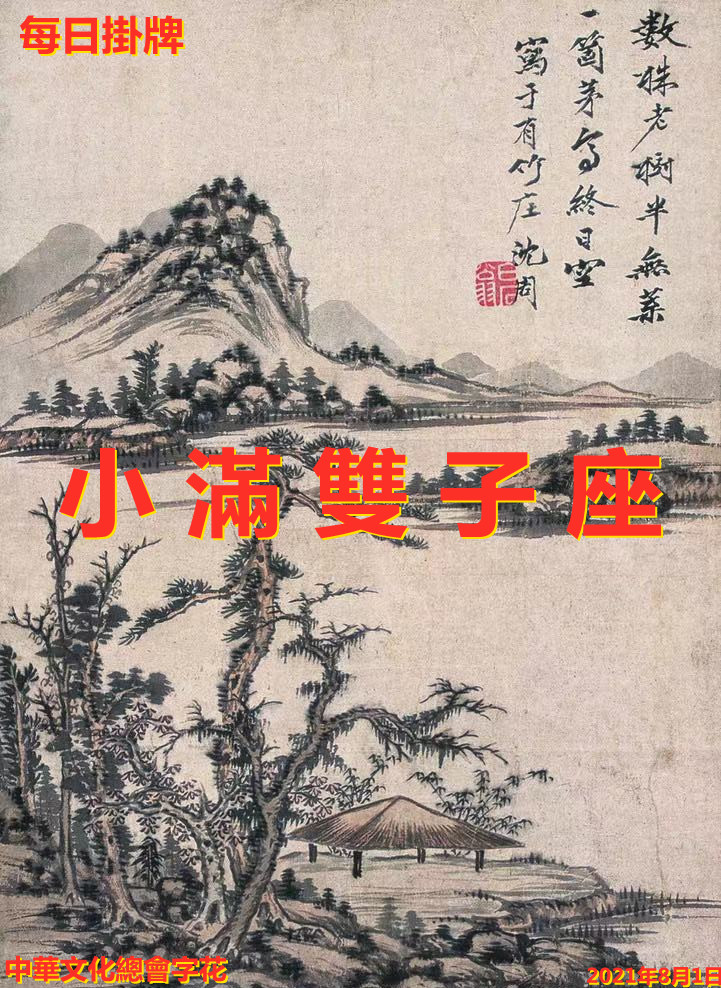 每日掛牌
數株老樹半無葉
一箇茅亭終日空
寫于有竹庄 沈周
小滿雙子座
中華文化總會字花
2021年8月1日